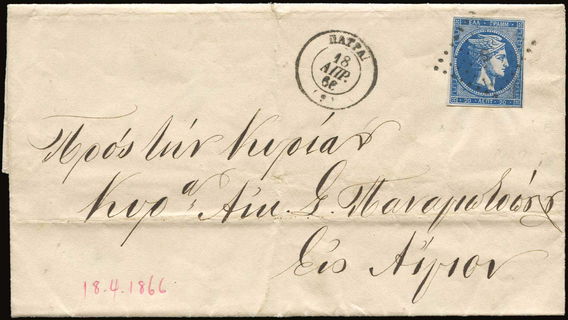 ΠΑΤΡΑΙ
18
ΑΠΡ.
66
ΕΛΛ ΓΡΑΜΜ
20 ΛΕΠΤ 20
Πρὸς τὴν Κυρίαν
Κυρᾳ Αἰκ. Σ.
Εἰς Αἴγιον
18.4.1866